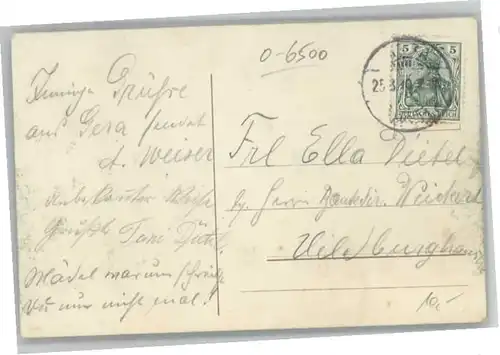 O-6500
5 5
25.3.10
DEUTSCHES REICH
Innige Grüße
aus Gera sendet
A. Weiser
Grüßt
Mädel warum schreibst
Du nur nicht mal!
Frl Ella Dietel
Herrn Bankdir. Weickert
Hildburghausen
10,-